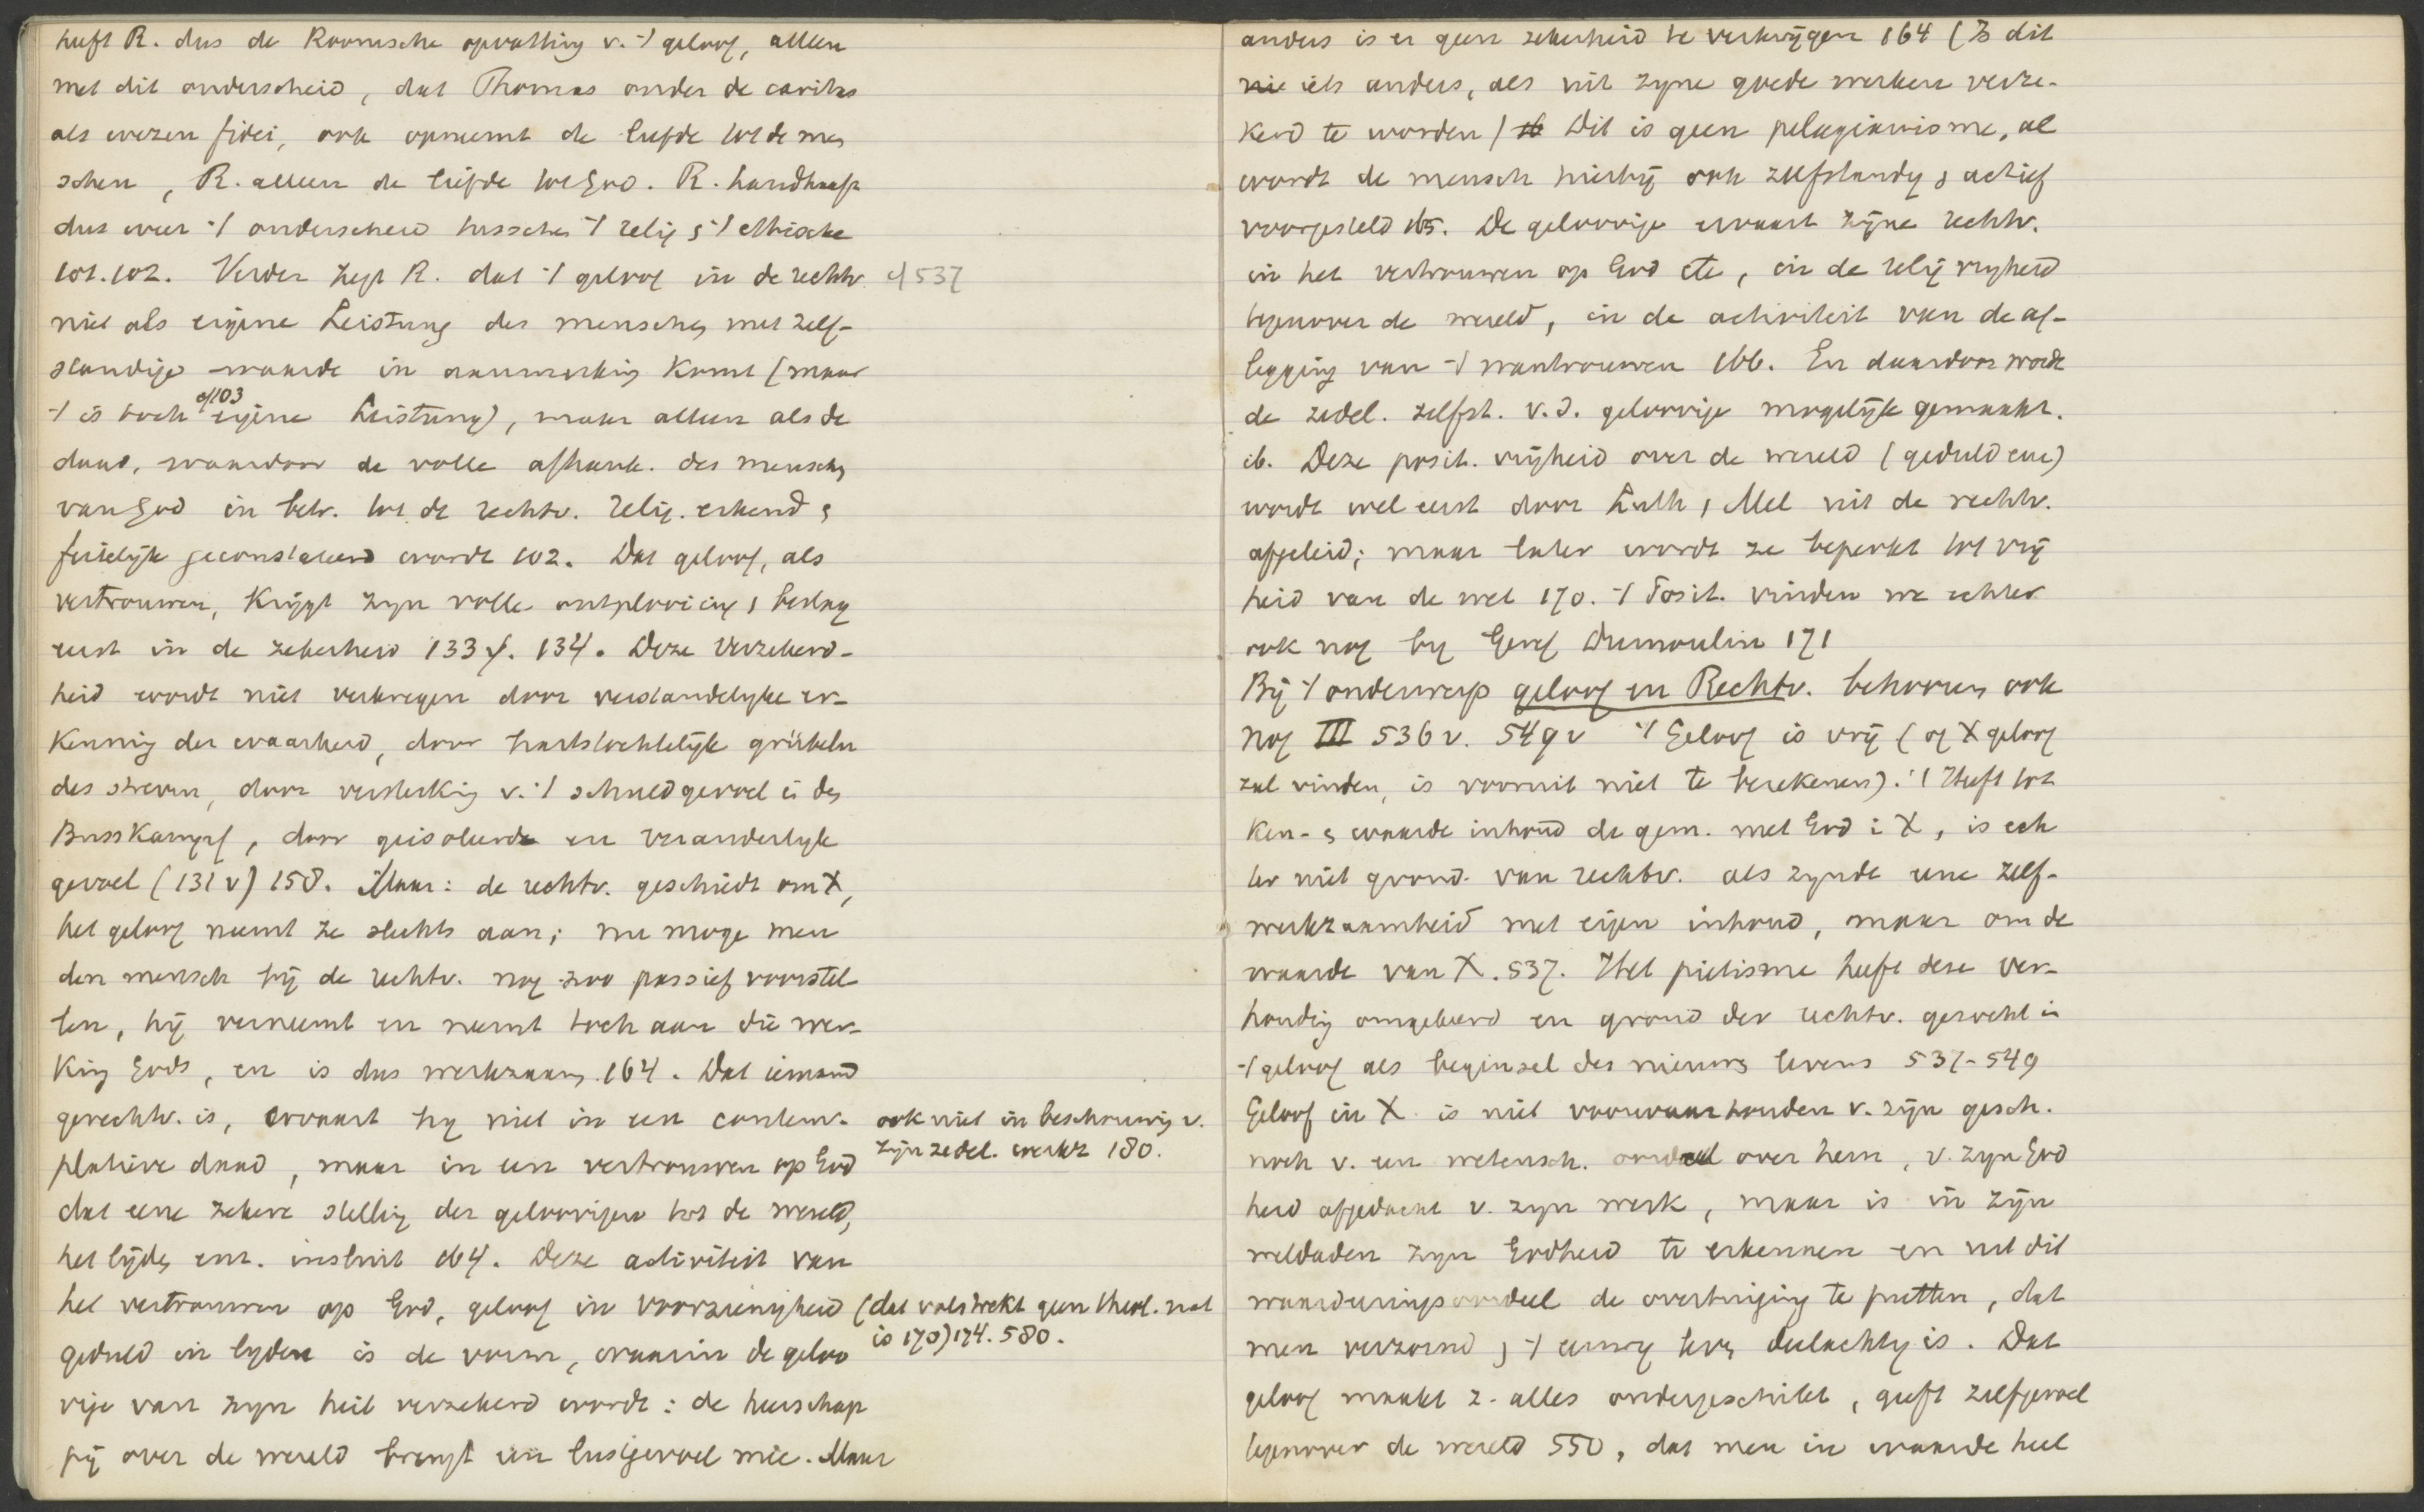 heeft R. dus de Roomsche opvatting v. -/ geloof, alleen
met dit onderscheid, dat Thomas onder de caritas
als wezen fidei, ook opneemt de liefde tot de men
schen, R. alleen de liefde tot God. R. handhaaft
dus weer -/ onderscheid tusschen -/ relig & -/ ethische
101.102. Verder zegt R. dat -/ geloof in de rechtv. cf 537
niet als eigene Leistung des menschen met zelf-
standige waarde in aanmerking komt (maar
cf 103
-/ is toch eigene Leistung), maar alleen als de
daad, waardoor de volle afhank. des menschen
van God in betr. tot de rechtv. relig. erkend &
feitelijk geconstateerd wordt 102. Dat geloof, als
vertrouwen, krijgt zyn volle ontplooiing & beslag
eerst in de zekerheid 133 cf. 134. Deze verzekerd-
heid wordt niet verkregen door verstandelyke er-
kenning der waarheid, door hartstochtelijk grübeln
des streven, door versterking v. -/ schuldgevoel i den
Busskampf, door geisoleerde en veranderlyk
gevoel (131 v) 158. Maar: de rechtv. geschiedt om X,
het geloof neemt ze slechts aan; nu moge men
den mensch bij de rechtv. nog zoo passief voorstel-
len, hij verneemt en neemt toch aan die wer-
king Gods, en is dus werkzaam 164. Dat iemand
gerechtv. is, ervaart hy niet in een contem- ook niet in beschouwing v.
zijn zedel. werkz 180.
platieve daad, maar in een vertrouwen op God
dat eene zekere stelling der geloovigen tot de wereld,
het lijden enz. insluit 164. Deze activiteit van
het vertrouwen op God, geloof in voorzienigheid (dat volstrekt geen theol. nat
is 170) 174. 580.
geduld in lyden is de vorm, waarin de geloo
vige van zyn heil verzekerd wordt: de heerschap
pij over de wereld brengt een lustgevoel mee. Maar
anders is er geen zekerheid te verkrijgen 164 (Is dit
nie iets anders, als uit zyne goede werken verze-
kerd te worden) Dit is geen pelagianisme, al
wordt de mensch hierbij ook zelfstandig & actief
voorgesteld 165. De geloovige ervaart zijne rechtv.
in het vertrouwen op God etc, in de relig vryheid
tegenover de wereld, in de activiteit van de af-
legging van -/ wantrouwen 166. En daardoor wordt
de zedel. zelfst. v. d. geloovige mogelijk gemaakt.
ib. Deze posit. vrijheid over de wereld (geduld enz)
wordt wel eerst door Luth & Mel uit de rechtv.
afgeleid; maar later wordt ze beperkt tot vrij
heid van de wet 170. -/ Posit. vinden we echter
ook nog by Dumoulin 171
Bij -/ onderwerp geloof en Rechtv. behooren ook
nog III 536 v. 549 v -/ Geloof is vrij (of X geloof
zal vinden, is vooruit niet te berekenen). -/ Heeft tot
ken- & waarde inhoud de gem. met God i X, is ech
ter niet grond van rechtv. als zynde eene zelf-
werkzaamheid met eigen inhoud, maar om de
waarde van X. 537. Het pietisme heeft deze ver-
houding omgekeerd en grond der rechtv. gezocht in
-/ geloof als beginsel des nieuwen levens 537-549
Geloof in X is niet voorwaarhouden v. zijn gesch.
noch v. een wetensch. oordeel over hem, v. zyn God
heid afgedacht v. zyn werk, maar is in zijn
weldaden zyn Godheid te erkennen en uit dit
waardeeringsoordeel de overtuiging te putten, dat
men verzoend & -/ eeuwig leven deelachtig is. Dat
geloof maakt z. alles ondergeschikt, geeft zelfgevoel
tegenover de wereld 550, dat men in waarde heel